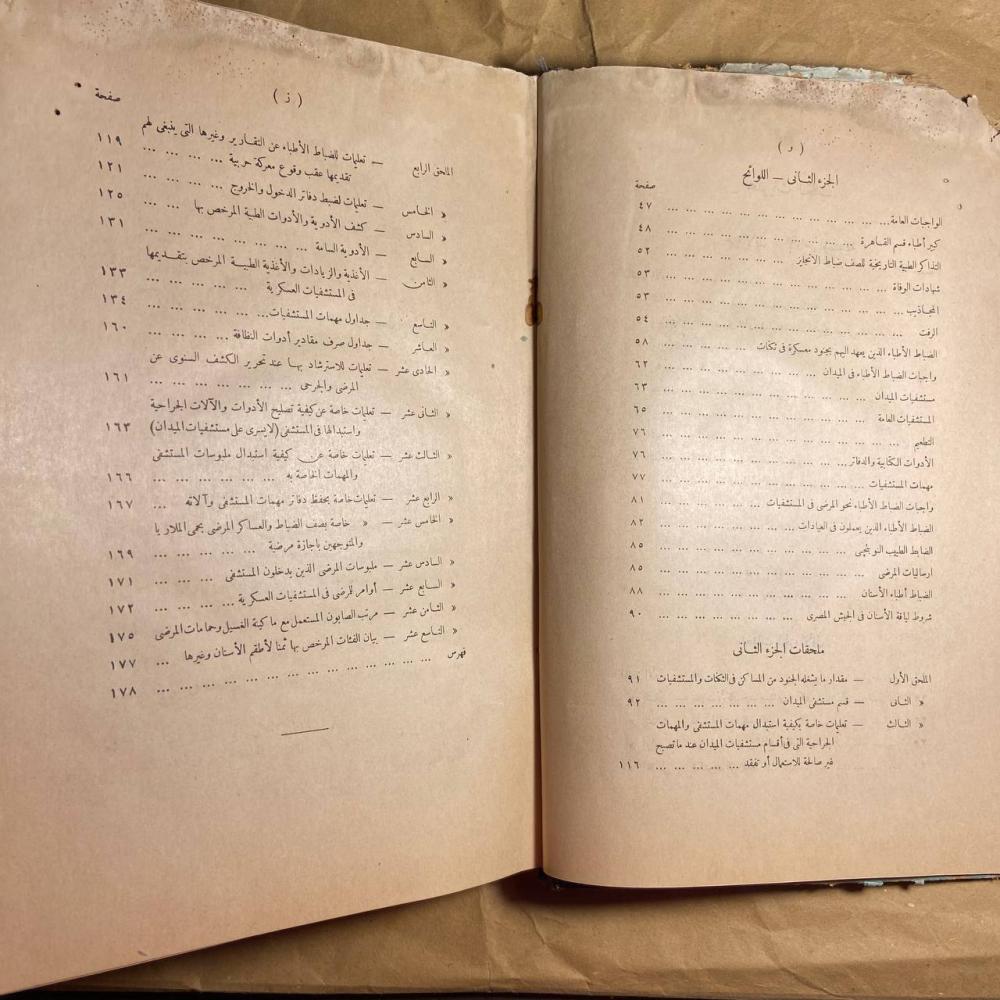 ( و )
الجزء الثانى — اللوائح
صفحة
الواجبات العامة ... ... ... ... ... ... ... ... ... ... ... ٤٧
كبير أطباء قسم القاهرة ... ... ... ... ... ... ... ... ... ٤٨
التذاكر الطبية التاريخية للصف ضباط الانجليز ... ... ... ... ... ٥٢
شهادات الوفاة ... ... ... ... ... ... ... ... ... ... ... ٥٣
المجاذيب ... ... ... ... ... ... ... ... ... ... ... ... ٥٣
الرفت ... ... ... ... ... ... ... ... ... ... ... ... ٥٤
الضباط الأطباء الذين يعهد اليهم بجنود معسكرة فى ثكنات ... ... ... ... ٥٨
واجبات الضباط الأطباء فى الميدان ... ... ... ... ... ... ... ٦٢
مستشفيات الميدان ... ... ... ... ... ... ... ... ... ... ٦٣
المستشفيات العامة ... ... ... ... ... ... ... ... ... ... ٦٥
التطعيم ... ... ... ... ... ... ... ... ... ... ... ... ٧٦
الأدوات الكتابية والدفاتر ... ... ... ... ... ... ... ... ... ٧٦
مهمات المستشفيات ... ... ... ... ... ... ... ... ... ... ٧٧
واجبات الضباط الأطباء نحو المرضى فى المستشفيات ... ... ... ... ... ٨١
الضباط الأطباء الذين يعملون فى العيادات ... ... ... ... ... ... ٨٢
الضابط الطبيب النوبتجى ... ... ... ... ... ... ... ... ... ٨٥
ارساليات المرضى ... ... ... ... ... ... ... ... ... ... ٨٥
الضباط أطباء الأسنان ... ... ... ... ... ... ... ... ... ٨٨
شروط لياقة الأسنان فى الجيش المصرى ... ... ... ... ... ... ٩٠
ملحقات الجزء الثانى
الملحق الأول — مقدار ما يشغله الجنود من المساكن فى الثكنات والمستشفيات ٩١
« الثانى — قسم مستشفى الميدان ... ... ... ... ... ... ... ٩٢
« الثالث — تعليمات خاصة بكيفية استبدال مهمات المستشفى والمهمات
الجراحية التى فى أقسام مستشفيات الميدان عند ما تصبح
غير صالحة للاستعمال أو تفقد ... ... ... ... ... ١١٦
( ز )
صفحة
الملحق الرابع — تعليمات للضباط الأطباء عن التقارير وغيرها التى ينبغى لهم
تقديمها عقب وقوع معركة حربية ... ... ... ... ١١٩
« الخامس — تعليمات لضبط دفاتر الدخول والخروج ... ... ... ... ١٢١
« السادس — كشف الأدوية والأدوات الطبية المرخص بها ... ... ١٢٥
« السابع — الأدوية السامة ... ... ... ... ... ... ... ... ١٣١
« الثامن — الأغذية والزيادات والأغذية الطبية المرخص بتقديمها
فى المستشفيات العسكرية ... ... ... ... ... ١٣٣
« التاسع — جداول مهمات المستشفيات ... ... ... ... ... ... ١٣٤
« العاشر — جداول صرف مقادير أدوات النظافة ... ... ... ١٦٠
« الحادى عشر — تعليمات للاسترشاد بها عند تحرير الكشف السنوى عن
المرضى والجرحى ... ... ... ... ... ... ... ١٦١
« الثانى عشر — تعليمات خاصة عن كيفية تصليح الأدوات والآلات الجراحية
واستبدالها فى المستشفى (لايسرى على مستشفيات الميدان) ١٦٣
« الثالث عشر — تعليمات خاصة عن كيفية استبدال ملبوسات المستشفى
والمهمات الخاصة به ... ... ... ... ... ... ١٦٦
« الرابع عشر — تعليمات خاصة بحفظ دفاتر مهمات المستشفى وآلاته ... ١٦٧
« الخامس عشر — « خاصة بصف الضباط والعساكر المرضى بحمى الملاريا
والمتوجهين باجازة مرضية ... ... ... ... ... ١٦٩
« السادس عشر — ملبوسات المرضى الذين يدخلون المستشفى ... ... ... ١٧١
« السابع عشر — أوامر للمرضى فى المستشفيات العسكرية ... ... ... ١٧٢
« الثامن عشر — مرتب الصابون المستعمل مع ماكينة الغسيل وحمامات المرضى ١٧٥
« التاسع عشر — بيان الفئات المرخص بها ثمنا لأطقم الأسنان وغيرها ... ١٧٧
فهرس ... ... ... ... ... ... ... ... ... ... ١٧٨